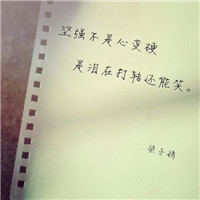 坚强不是心变硬
是泪在打转还能笑。
梁子婧